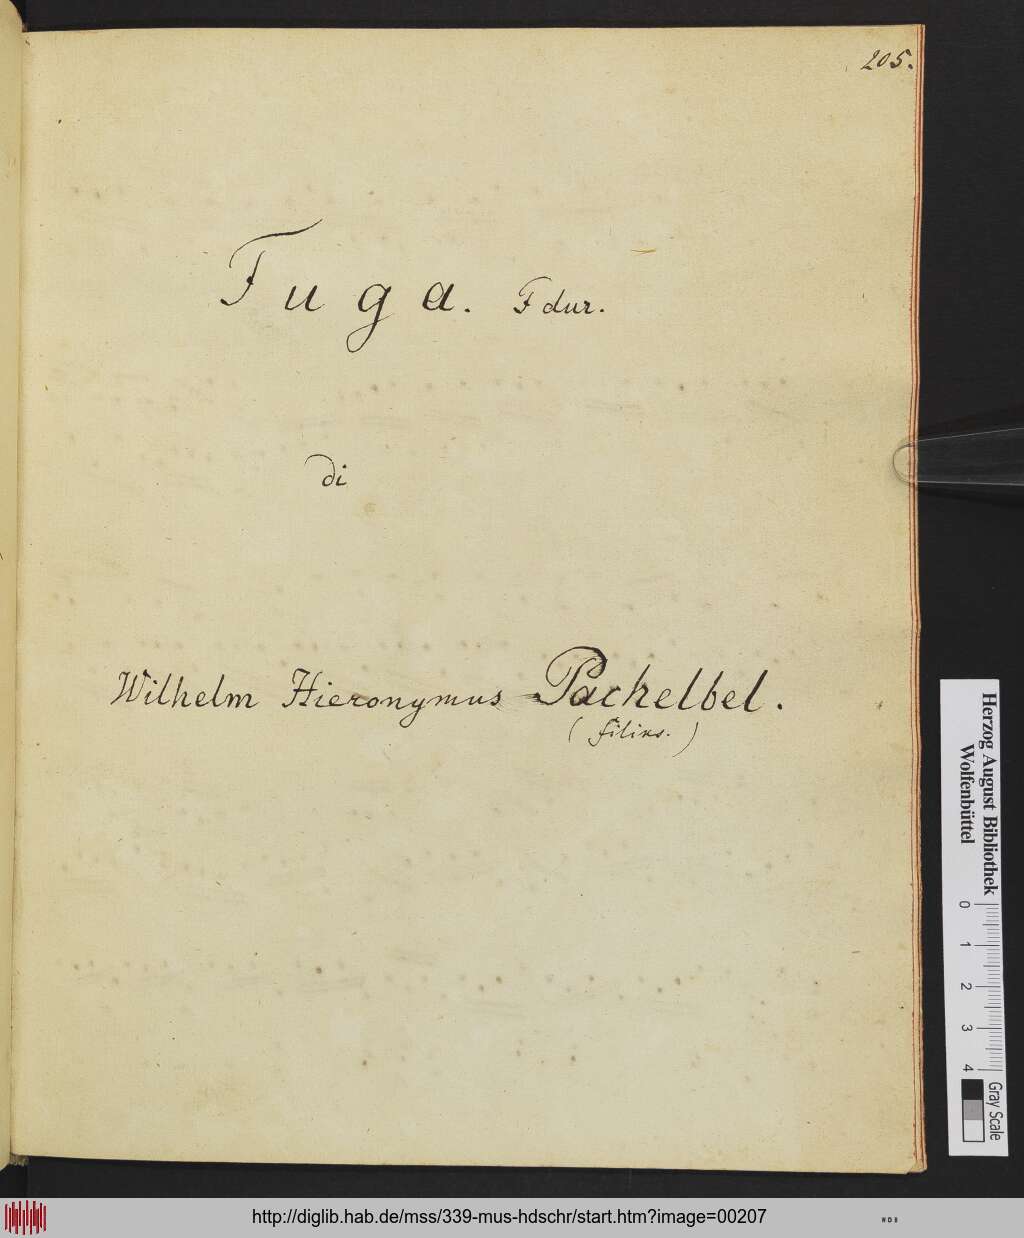 205.
Fuga. F dur.
di
Wilhelm Hieronymus Pachelbel.
(filius.)
Herzog August Bibliothek
Wolfenbüttel
0 1 2 3 4
Gray Scale
http://diglib.hab.de/mss/339-mus-hdschr/start.htm?image=00207